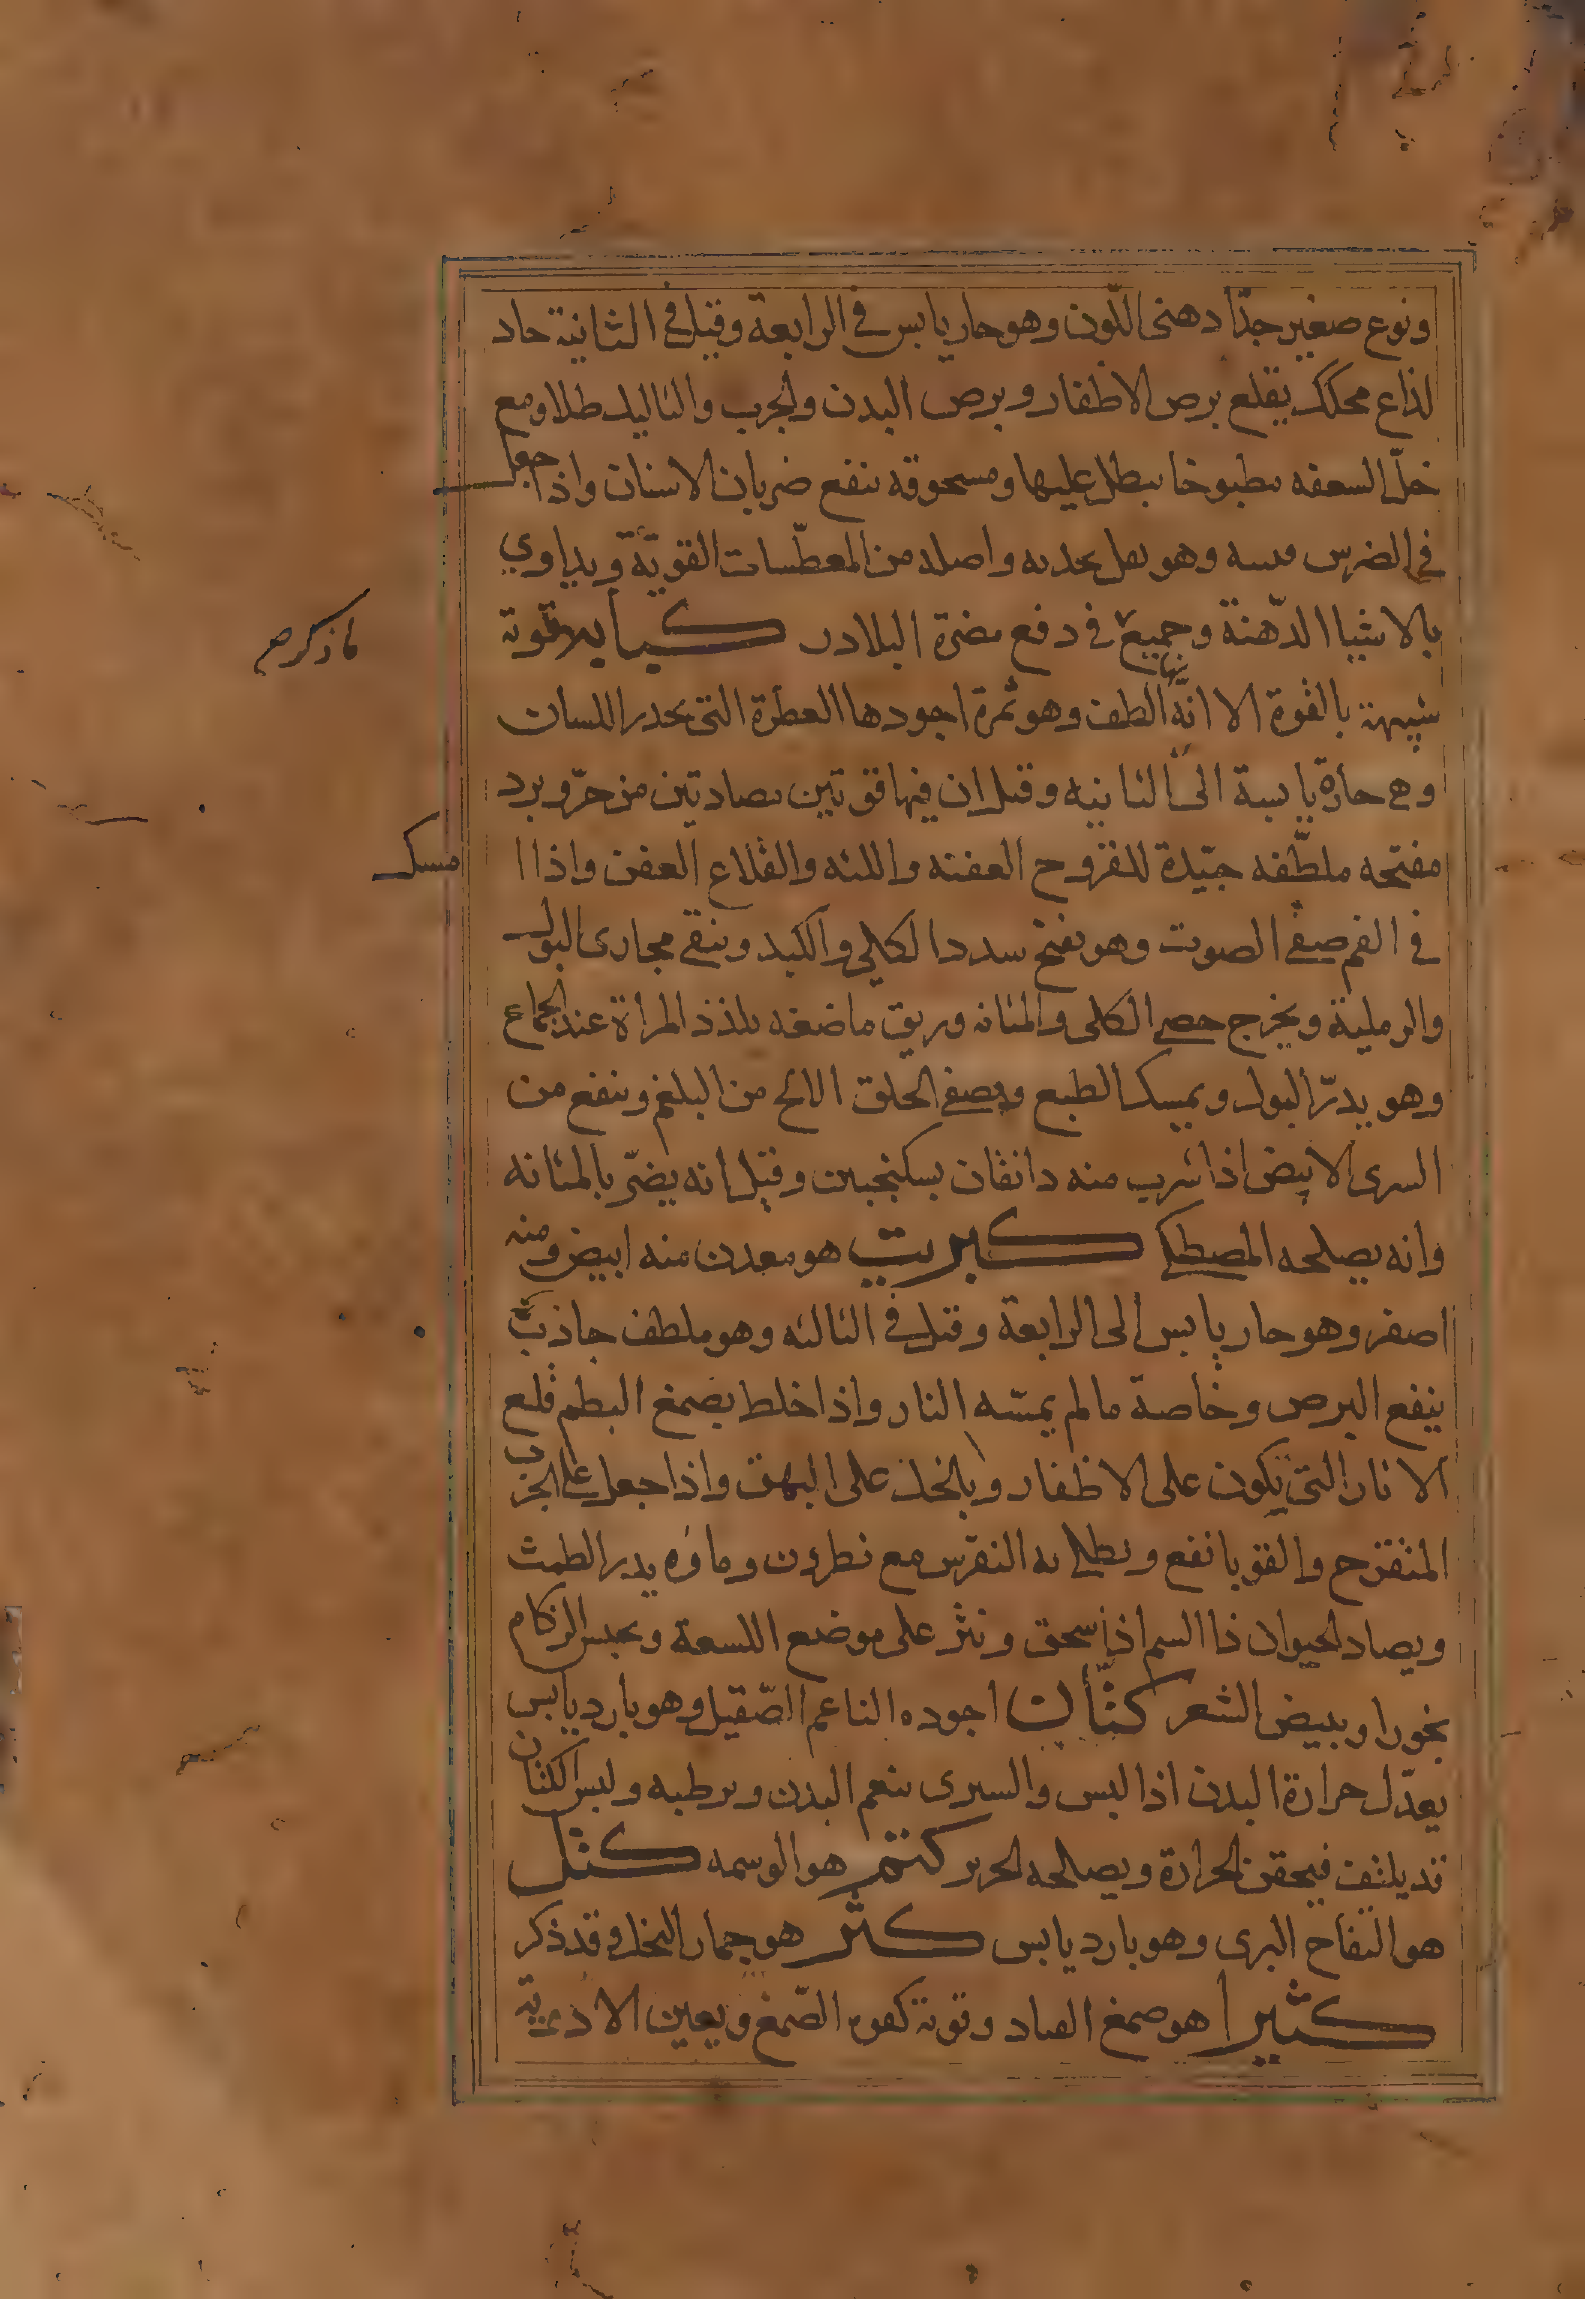 ونوع صغير جدّا دهنى اللّون وهو حار يابس فى الرابعة وقيل فى الثانية حاد
لذاع محكك يقلع برص الاظفار وبرص البدن والجرب والثاليل طلا ومع
خلّ السعفه مطبوخا يطلى عليها ومسحوقه ينفع ضربان الاسنان واذا جعل
فى الضرس وهو واصله من المعطّسات القويّة ويداوي
بالاشيا الدّهنة وجميع فى دفع مضرة البلادر كبابه قوته
ما ذكر
شبيهة بالفوة الا انّها الطف وهو ثمرة اجودها العطرة التى يحدر اللسان
وهى حارة يابسة الى الثانيه وقيل ان فيها قوتين متضادتين من حرّ وبرد
مفتحه ملطّفه جيّدة للقروح العفنه واللثه والقلاع العفن واذا امسك
فى الفم صفى الصوت وهو يفتح سدد الكلى والكبد وينقى مجارى البول
والرملية ويخرج حصى الكلى والمثانه وريق ماضغه يلذذ المراة عند الجماع
وهو يدرّ البول ويمسك الطبع ويصفى الحلق من البلغم وينفع من
السرى الابيض اذا شرب منه دانقان بسكنجبين وقيل انه يضرّ بالمثانه
وانه يصلحه المصطكى كبريت هو معدن منه ابيض ومنه
اصفر وهو حار يابس الى الرابعة وقيل فى الثالثه وهو ملطف جاذب
ينفع البرص وخاصة مالم يمسّه النار واذا خلط بصمغ البطم قلع
الاثار التى تكون على الاظفار وبالخل على البهق واذا جعل على الجرب
المتقرح والقوبا نفع ويطلى به النقرس مع نطرون وماوه يدر الطمث
ويصاد الحيوان ذا السم اذا سحق ونثر على موضع اللسعة ويحبس الزكام
بخورا ويبيض الشعر كتّان اجوده الناعم الصّقيل وهو بارد يابس
يعدّل حرارة البدن اذا لبس والسرى ينعم البدن ويرطبه ولبس الكتان
قد يلثف فيحقن الحرارة ويصلحه الحرير كتم هو الوسمه كثل
هو التفاح البرى وهو بارد يابس كثر هو جمار النخل وقد ذكر
كثيرا هو صمغ القتاد وقوته كقوه الصّمغ ويعين الادوية